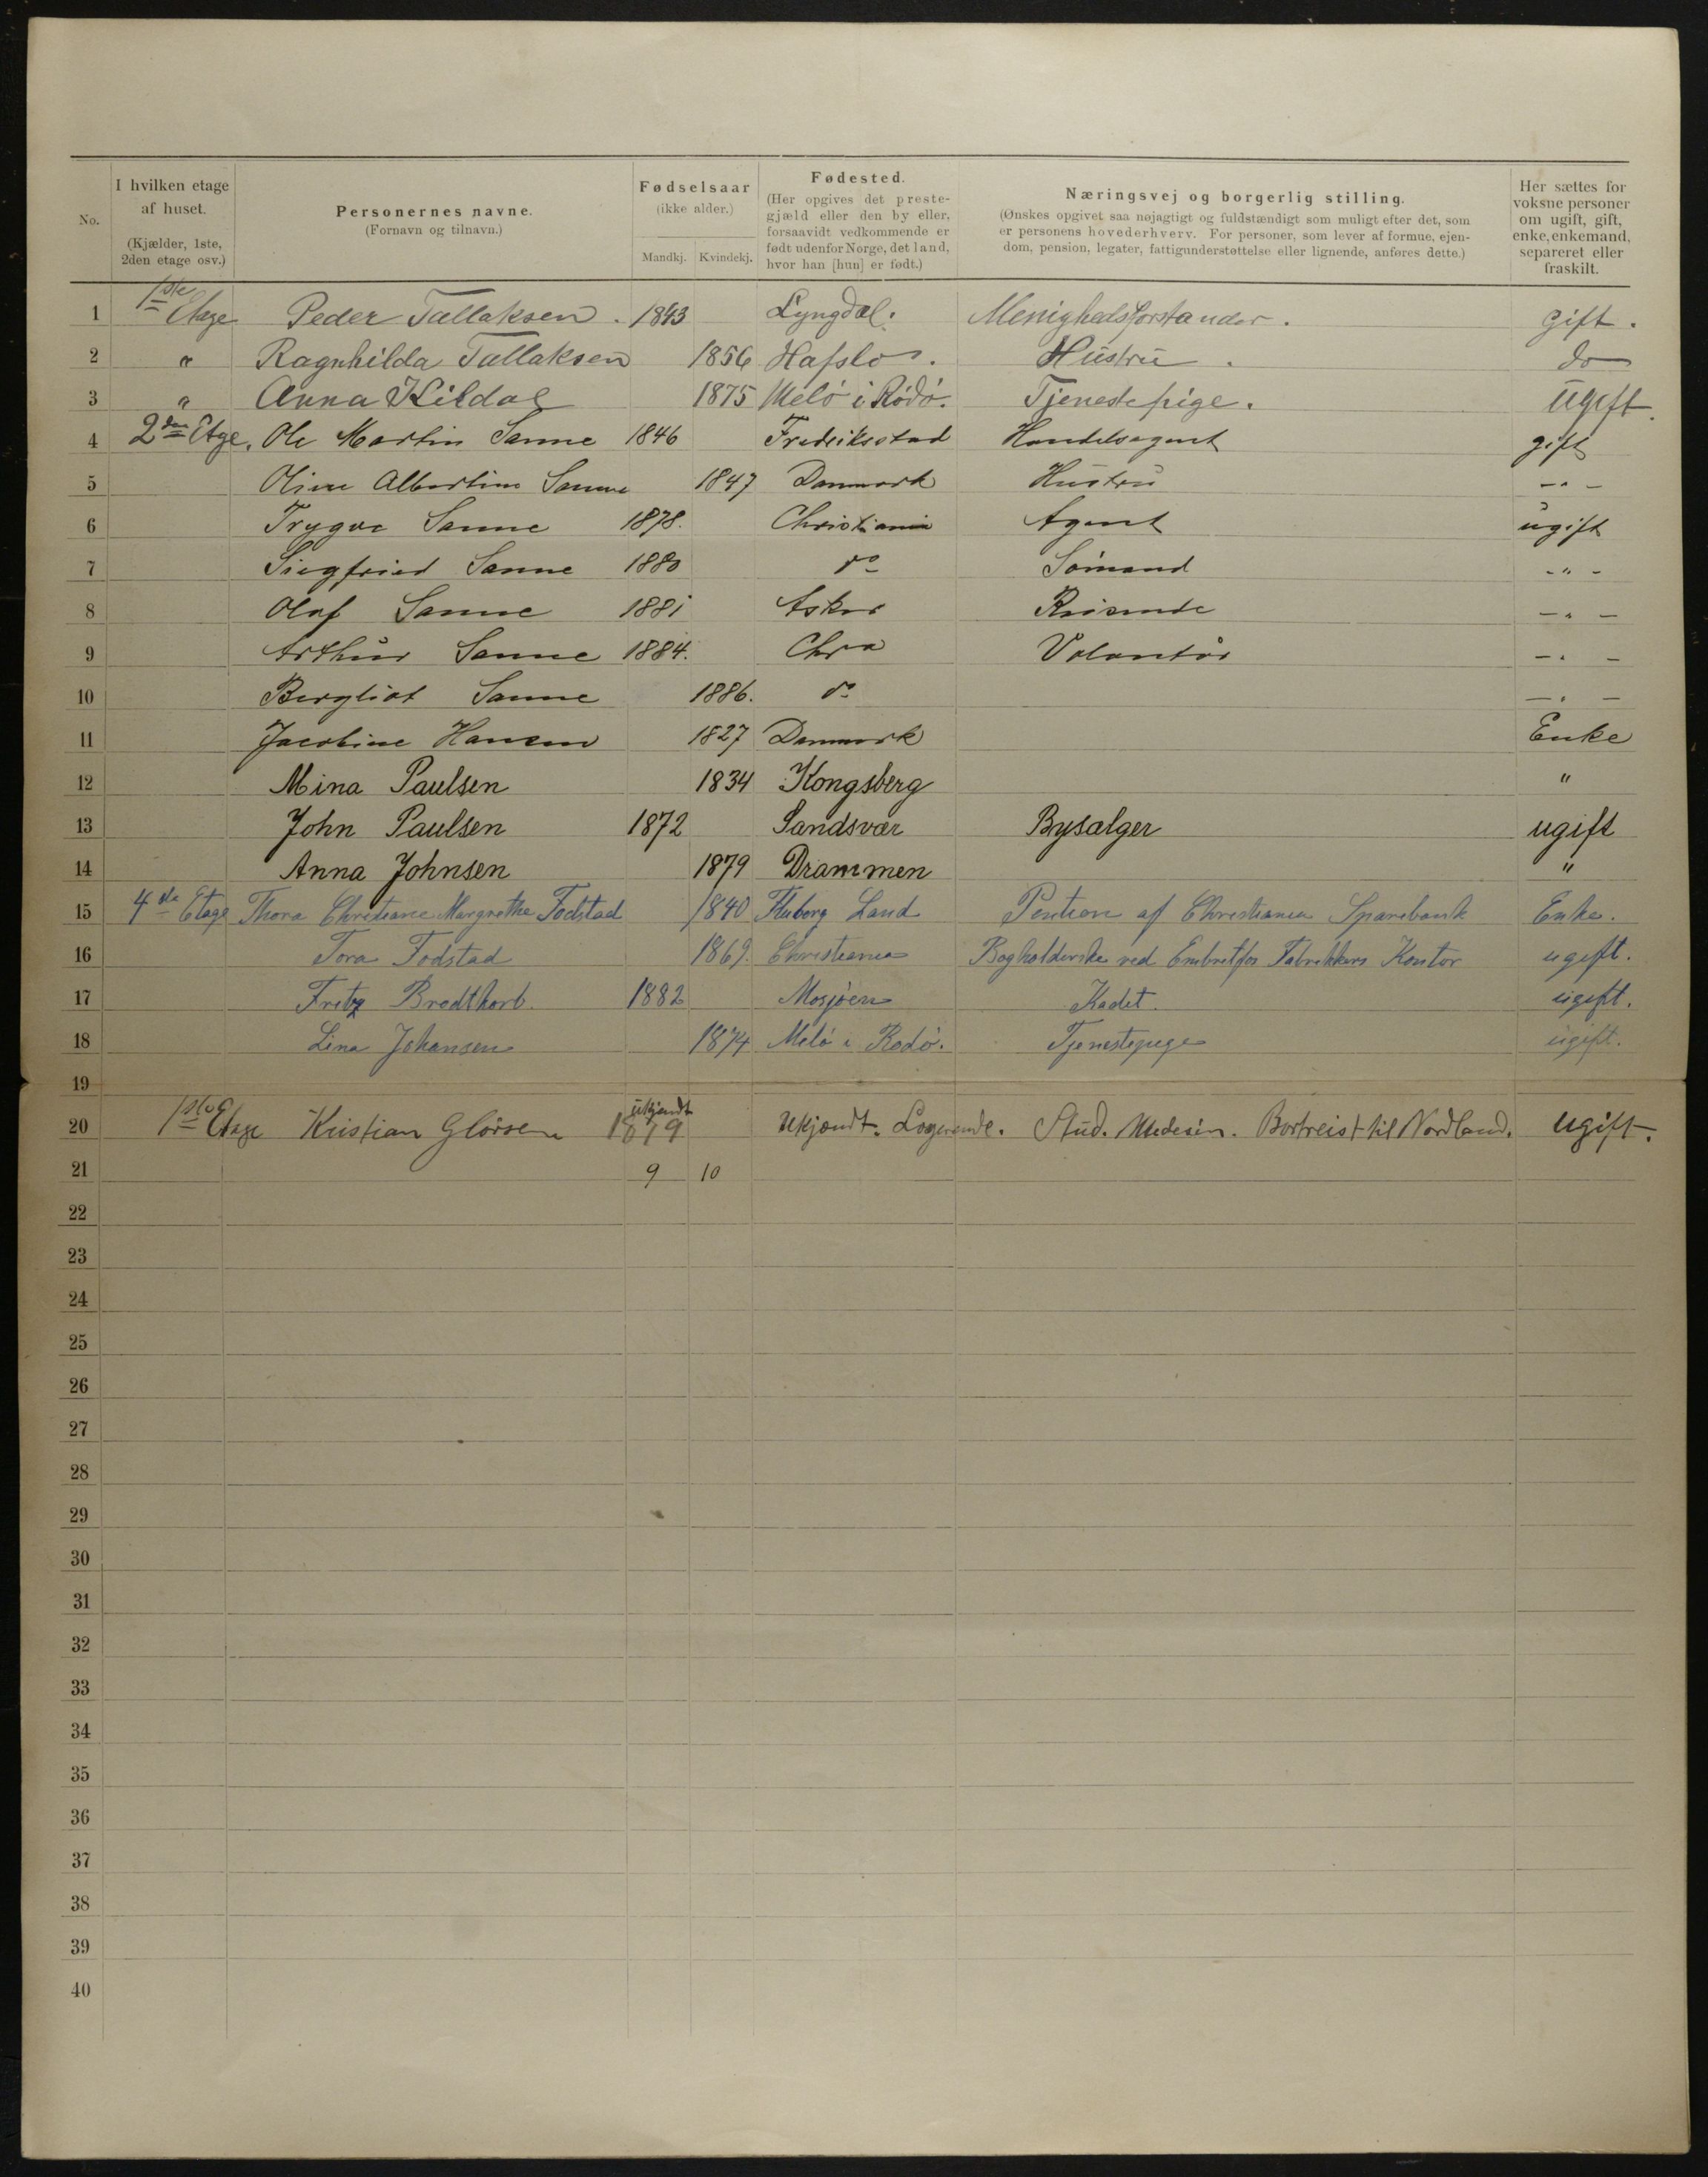 No.
I hvilken etage af huset. (Kjælder, 1ste, 2den etage osv.)
Personernes navne. (Fornavn og tilnavn.)
Fødselsaar (ikke alder.) Mandkj. Kvindekj.
Fødested. (Her opgives det prestegjæld eller den by eller, forsaavidt vedkommende er født udenfor Norge, det land, hvor han [hun] er født.)
Næringsvej og borgerlig stilling. (Ønskes opgivet saa nøjagtigt og fuldstændigt som muligt efter det, som er personens hovederhverv. For personer, som lever af formue, ejendom, pension, legater, fattigunderstøttelse eller lignende, anføres dette.)
Her sættes for voksne personer om ugift, gift, enke, enkemand, separeret eller fraskilt.
1 1ste Etage Peder Tallaksen. 1843 Lyngdal. Menighedsforstander. gift.
2 " Ragnhilda Tallaksen 1856 Hafslo. Hustru. do
3 " Anna Kildal 1875 Melö i Rödö. Tjenestepige. ugift.
4 2den Etge. Ole Martin Sanne 1846 Fredriksstad Handelsagent gift
5 Olive Albertine Sanne 1847 Danmark Hustru - " -
6 Trygve Sanne 1878. Christiania Agent ugift
7 Siegfried Sanne 1880 do Sömand - " -
8 Olaf Sanne 1881 Asker Reisende - " -
9 Arthur Sanne 1884. Chra Volontør - " -
10 Bergliot Sanne 1886. do - " -
11 Jacobine Hansen 1827 Danmark Enke
12 Mina Paulsen 1834 Kongsberg "
13 John Paulsen 1872 Sandsvær Bysælger ugift
14 Anna Johnsen 1879 Drammen "
15 4de Etage Thora Christiane Margrethe Fodstad 1840 Fluberg Land Pention af Christiania Sparebank Enke.
16 Tora Fodstad 1869. Christiania Bogholderske ved Embretfos Fabrikkers Kontor ugift.
17 Fritz Bredtkorb. 1882 Mosjöen Kadet. ugift.
18 Lina Johansen 1874 Melö i Rodö. Tjenestepige ugift.
19
20 1ste Etage Kristian Glörsen ukjendt 1879 Ukjendt. Logerende. Stud. Medesin. Bortreist til Nordland. ugift.
21 9 10
22
23
24
25
26
27
28
29
30
31
32
33
34
35
36
37
38
39
40